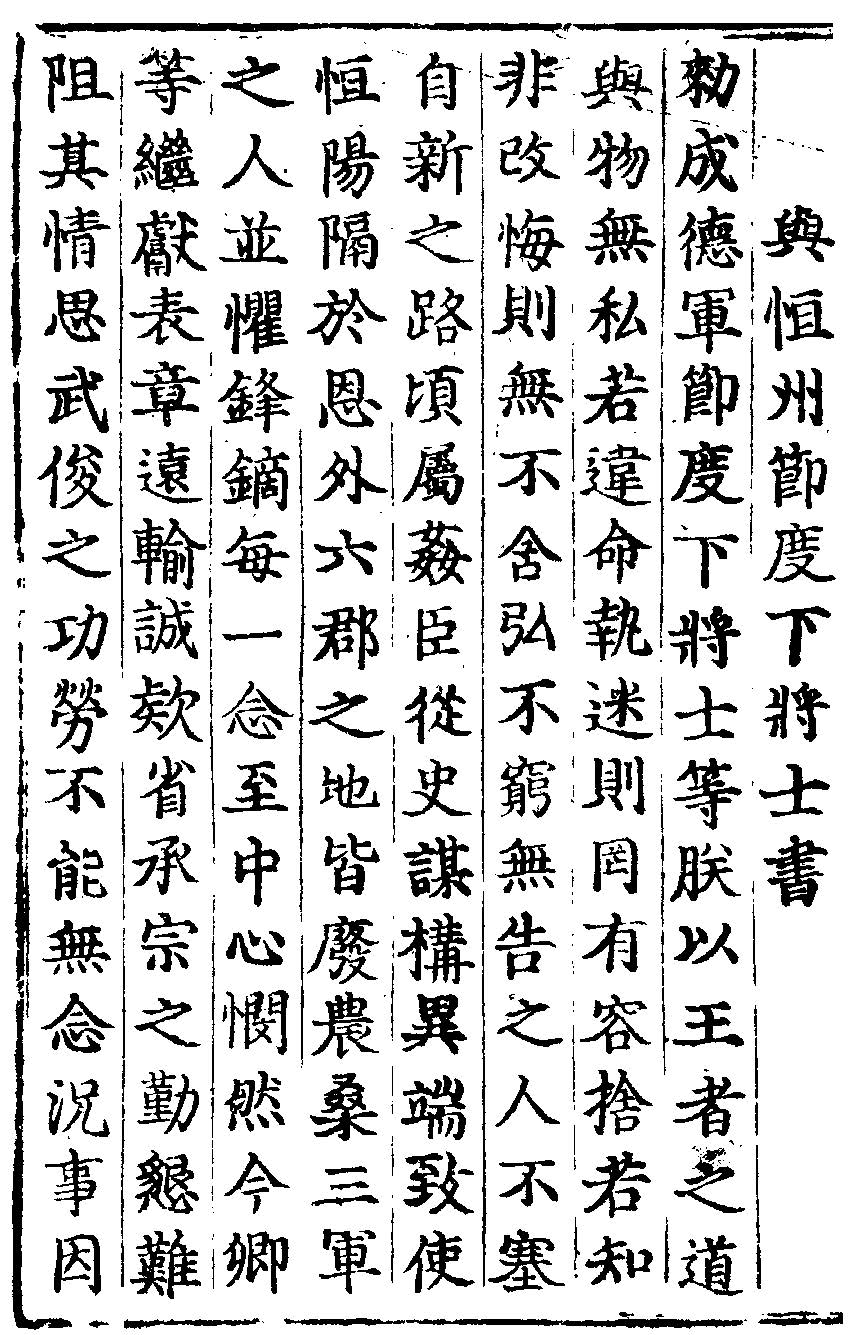 與恒州節度下將士書
勑成德軍節度下將士等朕以王者之道
與物無私若違命執迷則罔有容捨若知
非改悔則無不舍弘不窮無告之人不塞
自新之路頃屬姦臣從史謀構異端致使
恒陽隔於恩外六郡之地皆廢農桑三軍
之人並懼鋒鏑每一念至中心憫然今卿
等繼獻表章遠輸誠欵省承宗之勤懇難
阻其情思武俊之功勞不能無念況事因